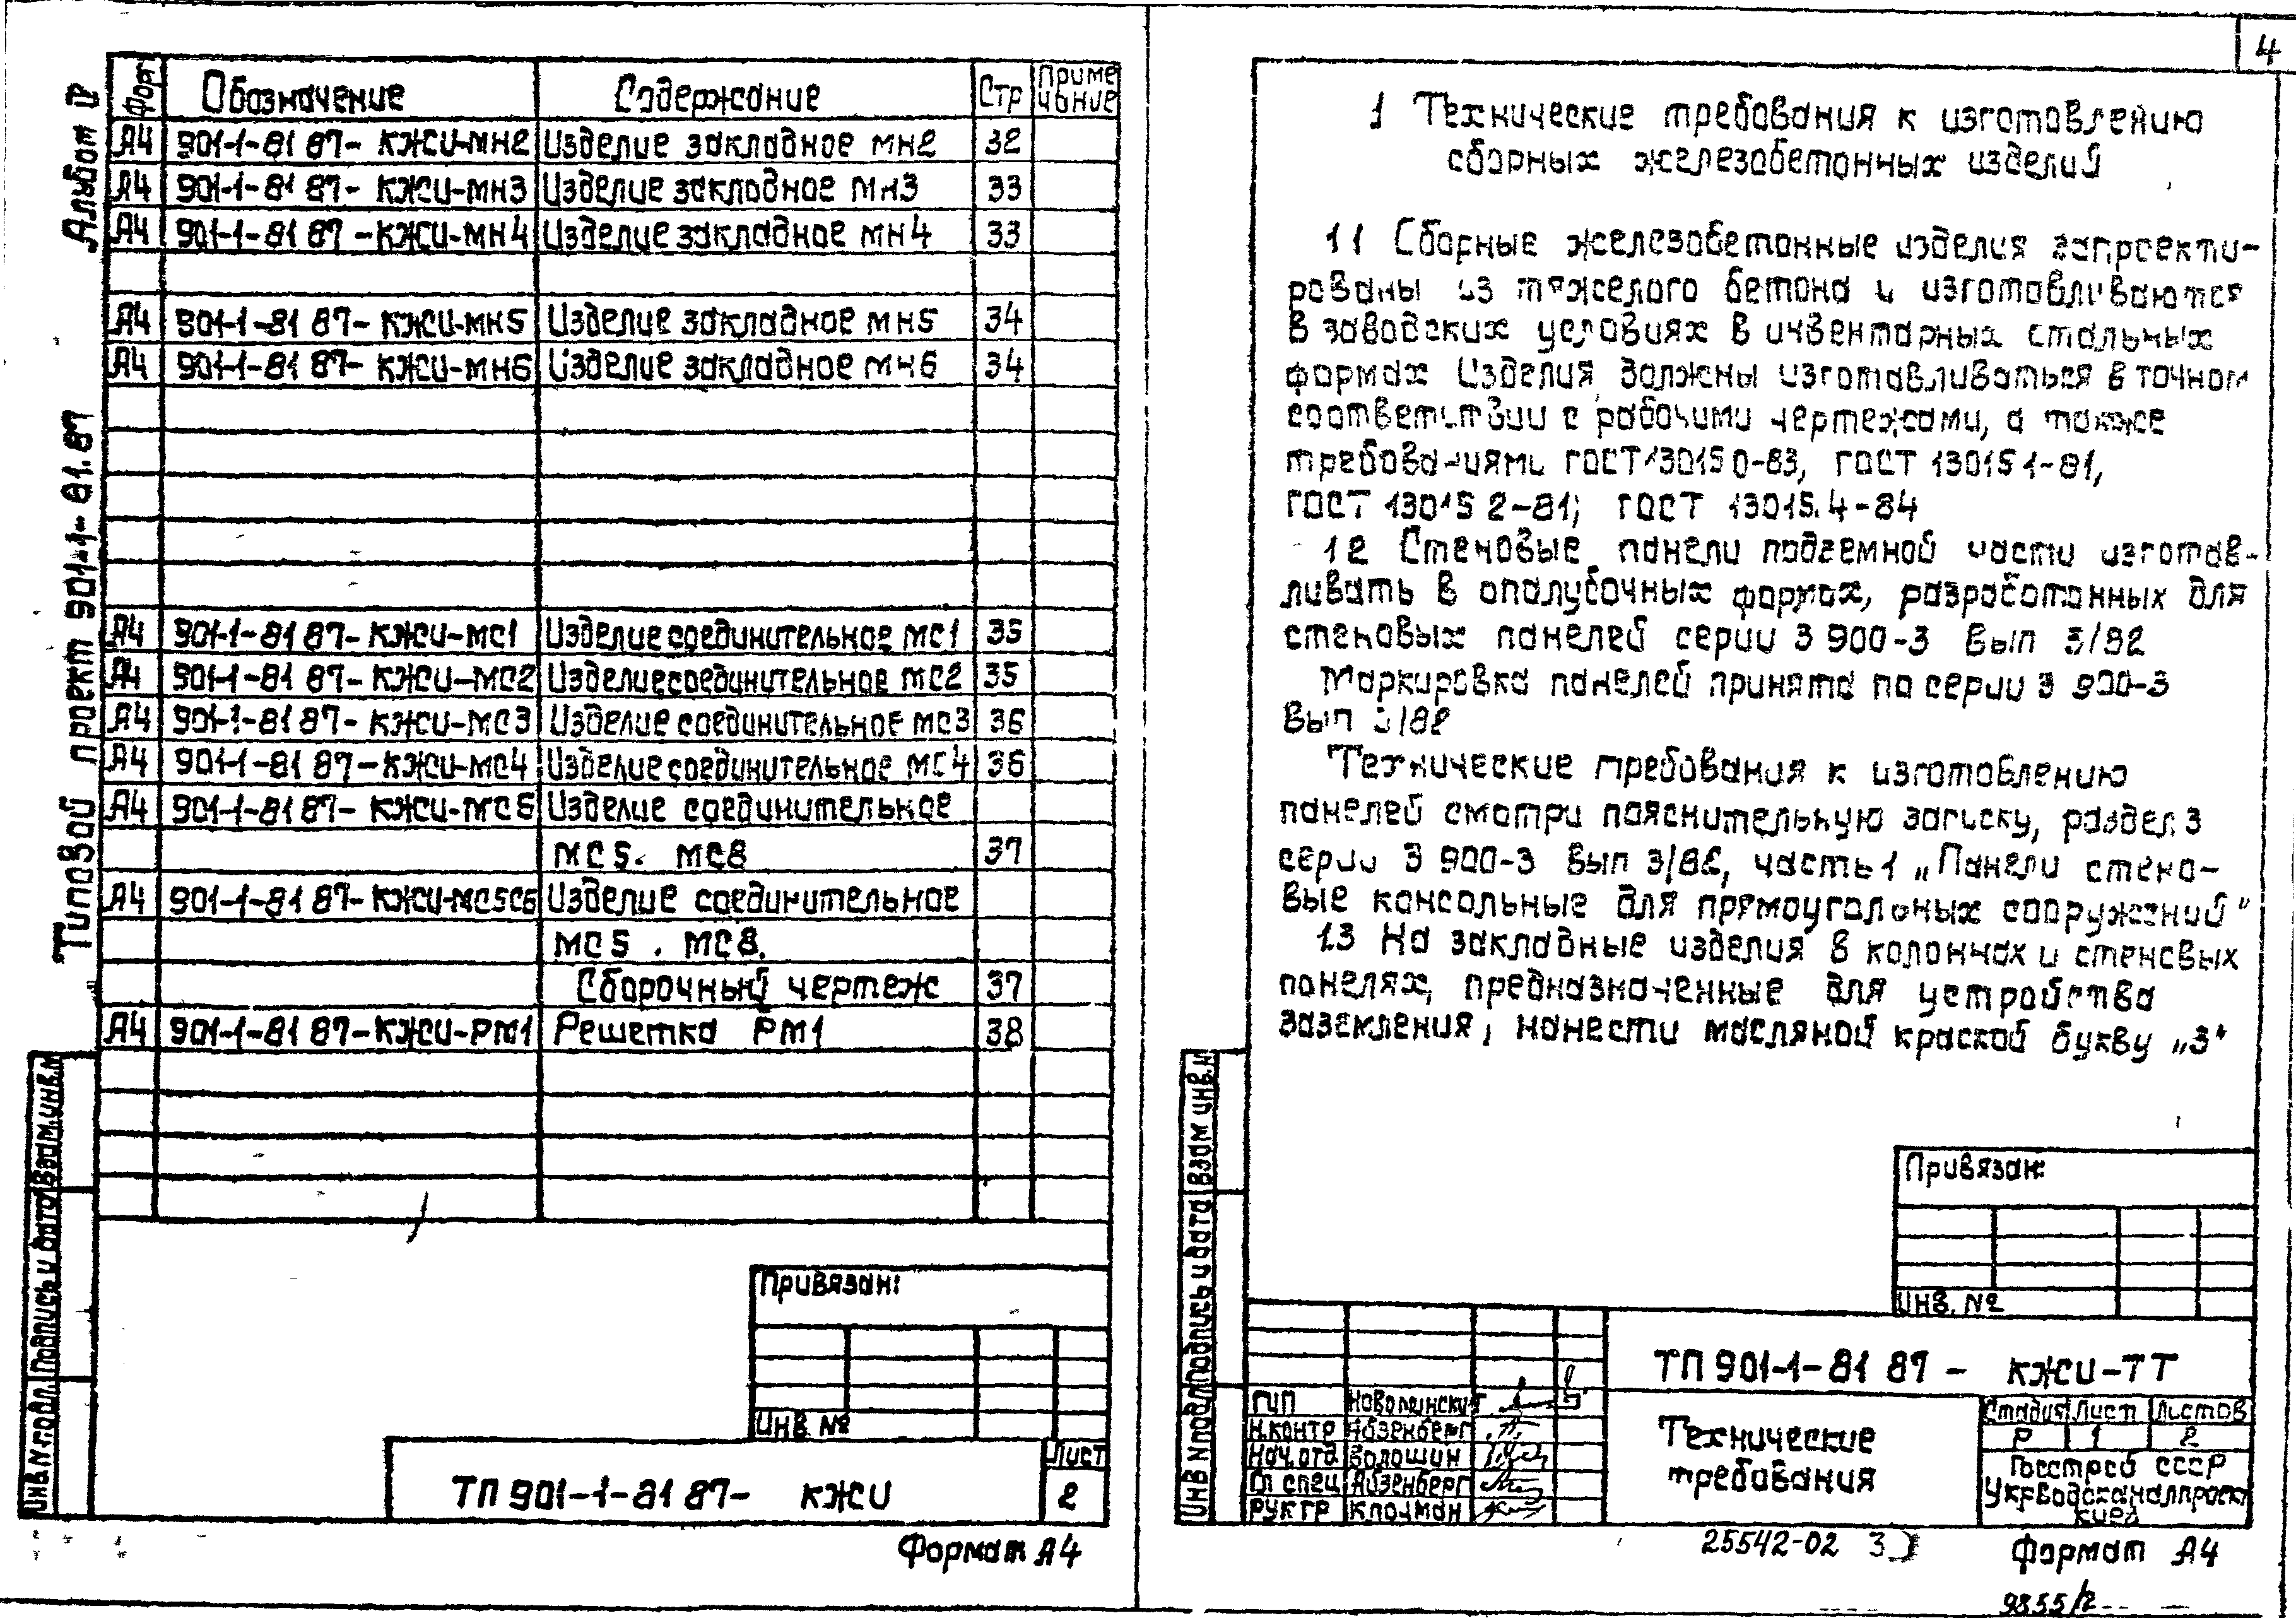 4
Альбом IV
Типовой проект 901-1-81.87
Форм Обозначение Содержание Стр Приме чание
А4 901-1-81 87- КЖСИ-МН2 Изделие закладное МН2 32
А4 901-1-81 87- КЖСИ-МН3 Изделие закладное МН3 33
А4 901-1-81 87-КЖСИ-МН4 Изделие закладное МН4 33
А4 901-1-81 87- КЖСИ-МН5 Изделие закладное МН5 34
А4 901-1-81 87- КЖСИ-МН6 Изделие закладное МН6 34
А4 901-1-81 87- КЖСИ-МС1 Изделие соединительное МС1 35
А4 901-1-81 87- КЖСИ-МС2 Изделие соединительное МС2 35
А4 901-1-81 87- КЖСИ-МС3 Изделие соединительное МС3 36
А4 901-1-81 87-КЖСИ-МС4 Изделие соединительное МС4 36
А4 901-1-81 87- КЖСИ-МС5 Изделие соединительное
МС5. МС8 37
А4 901-1-81 87-КЖСИ-МС5СБ Изделие соединительное
МС5 . МС8.
Сборочный чертеж 37
А4 901-1-81 87-КЖСИ-РМ1 Решетка РМ1 38
Инв N подл. Подпись и дата Взам.инв.N
Привязан:
Инв №
ТП 901-1-81 87- КЖСИ
Лист
2
Формат А4
1 Технические требования к изготовлению
сборных железобетонных изделий
1 1 Сборные железобетонные изделия запроекти-
рованы из тяжелого бетона и изготовливаются
в заводских условиях в инвентарных стальных
формах Изделия должны изготавливаться в точном
соответствии с рабочими чертежами, а также
требованиями ГОСТ 13015 0-83, ГОСТ 13015 1-81,
ГОСТ 13015 2-81; ГОСТ 13015.4-84
1 2 Стеновые панели подземной части изготав-
ливать в опалубочных формах, разработанных для
стеновых панелей серии 3 900-3 вып 3/82
Маркировка панелей принята по серии 3 900-3
вып 3/82
Технические требования к изготовлению
панелей смотри пояснительную записку, раздел 3
серии 3 900-3 вып 3/82, часть 1 „Панели стено-
вые консольные для прямоугольных сооружений"
1.3 На закладные изделия в колоннах и стеновых
панелях, предназначенные для устройства
заземления, нанести масляной краской букву „З"
Инв N подл Подпись и дата Взам инв.N
Привязан:
Инв. №
ТП 901-1-81 87 - КЖСИ-ТТ
ГИП Новолинский
Н.контр Айзенберг
Нач.отд Волошин
Гл спец Айзенберг
Рук гр Клоцман
Технические
требования
Стадия Лист Листов
Р 1 2
Госстрой СССР
Укрводоканалпроект
Киев
25542-02 3
Формат А4
9855/2